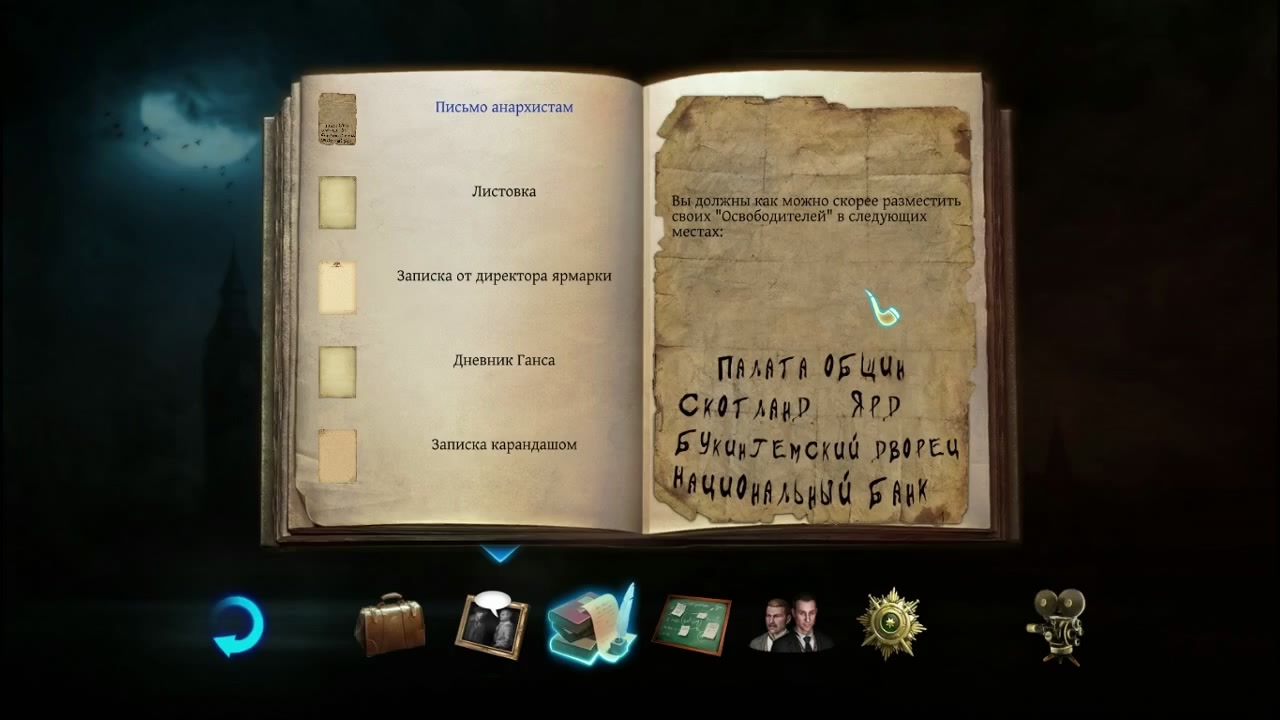 Письмо анархистам
Листовка
Записка от директора ярмарки
Дневник Ганса
Записка карандашом
Вы должны как можно скорее разместить
своих "Освободителей" в следующих
местах:
ПАЛАТА ОБЩИН
СКОТЛАНД ЯРД
БУКИНГЕМСКИЙ ДВОРЕЦ
НАЦИОНАЛЬНЫЙ БАНК